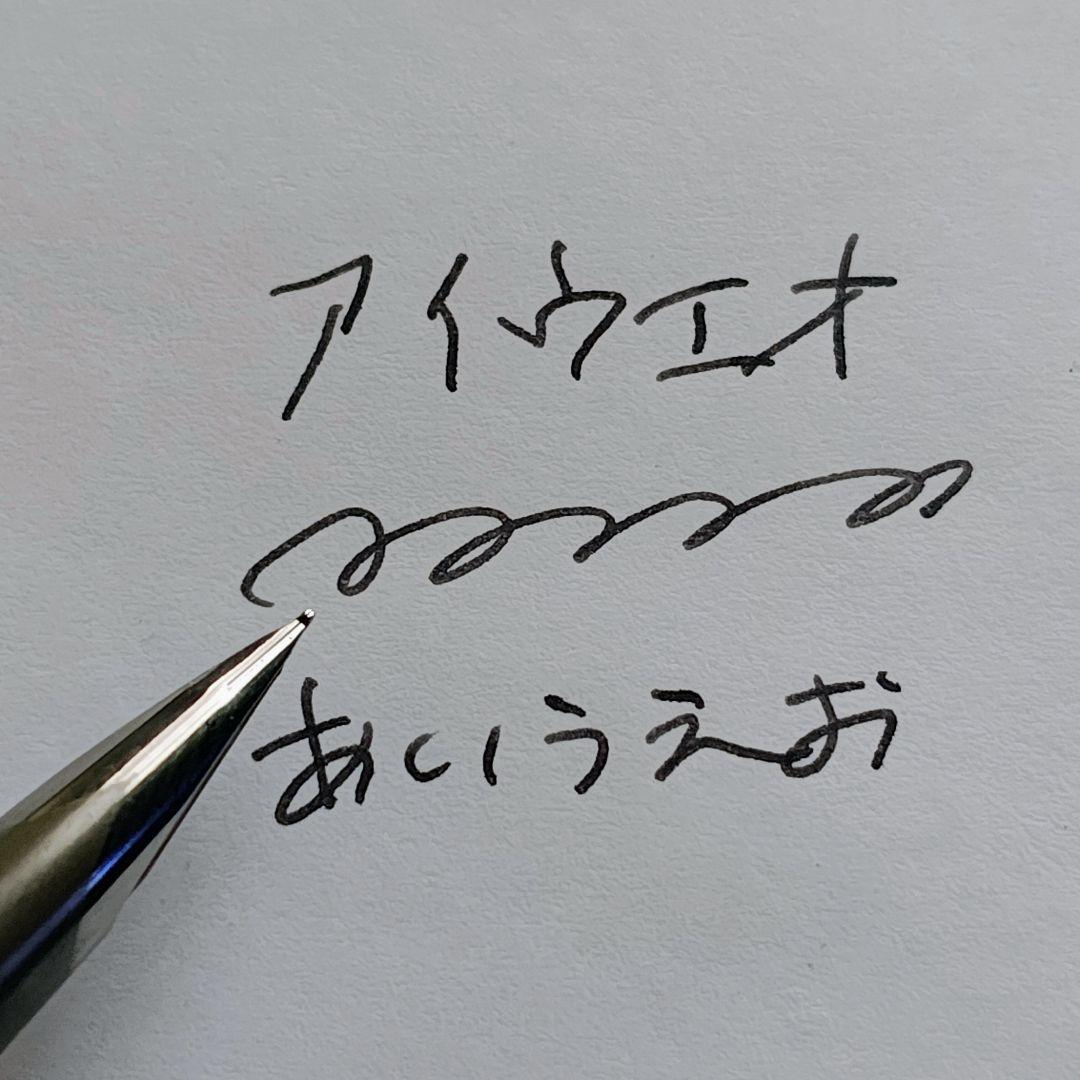 アイウエオ
あいうえお